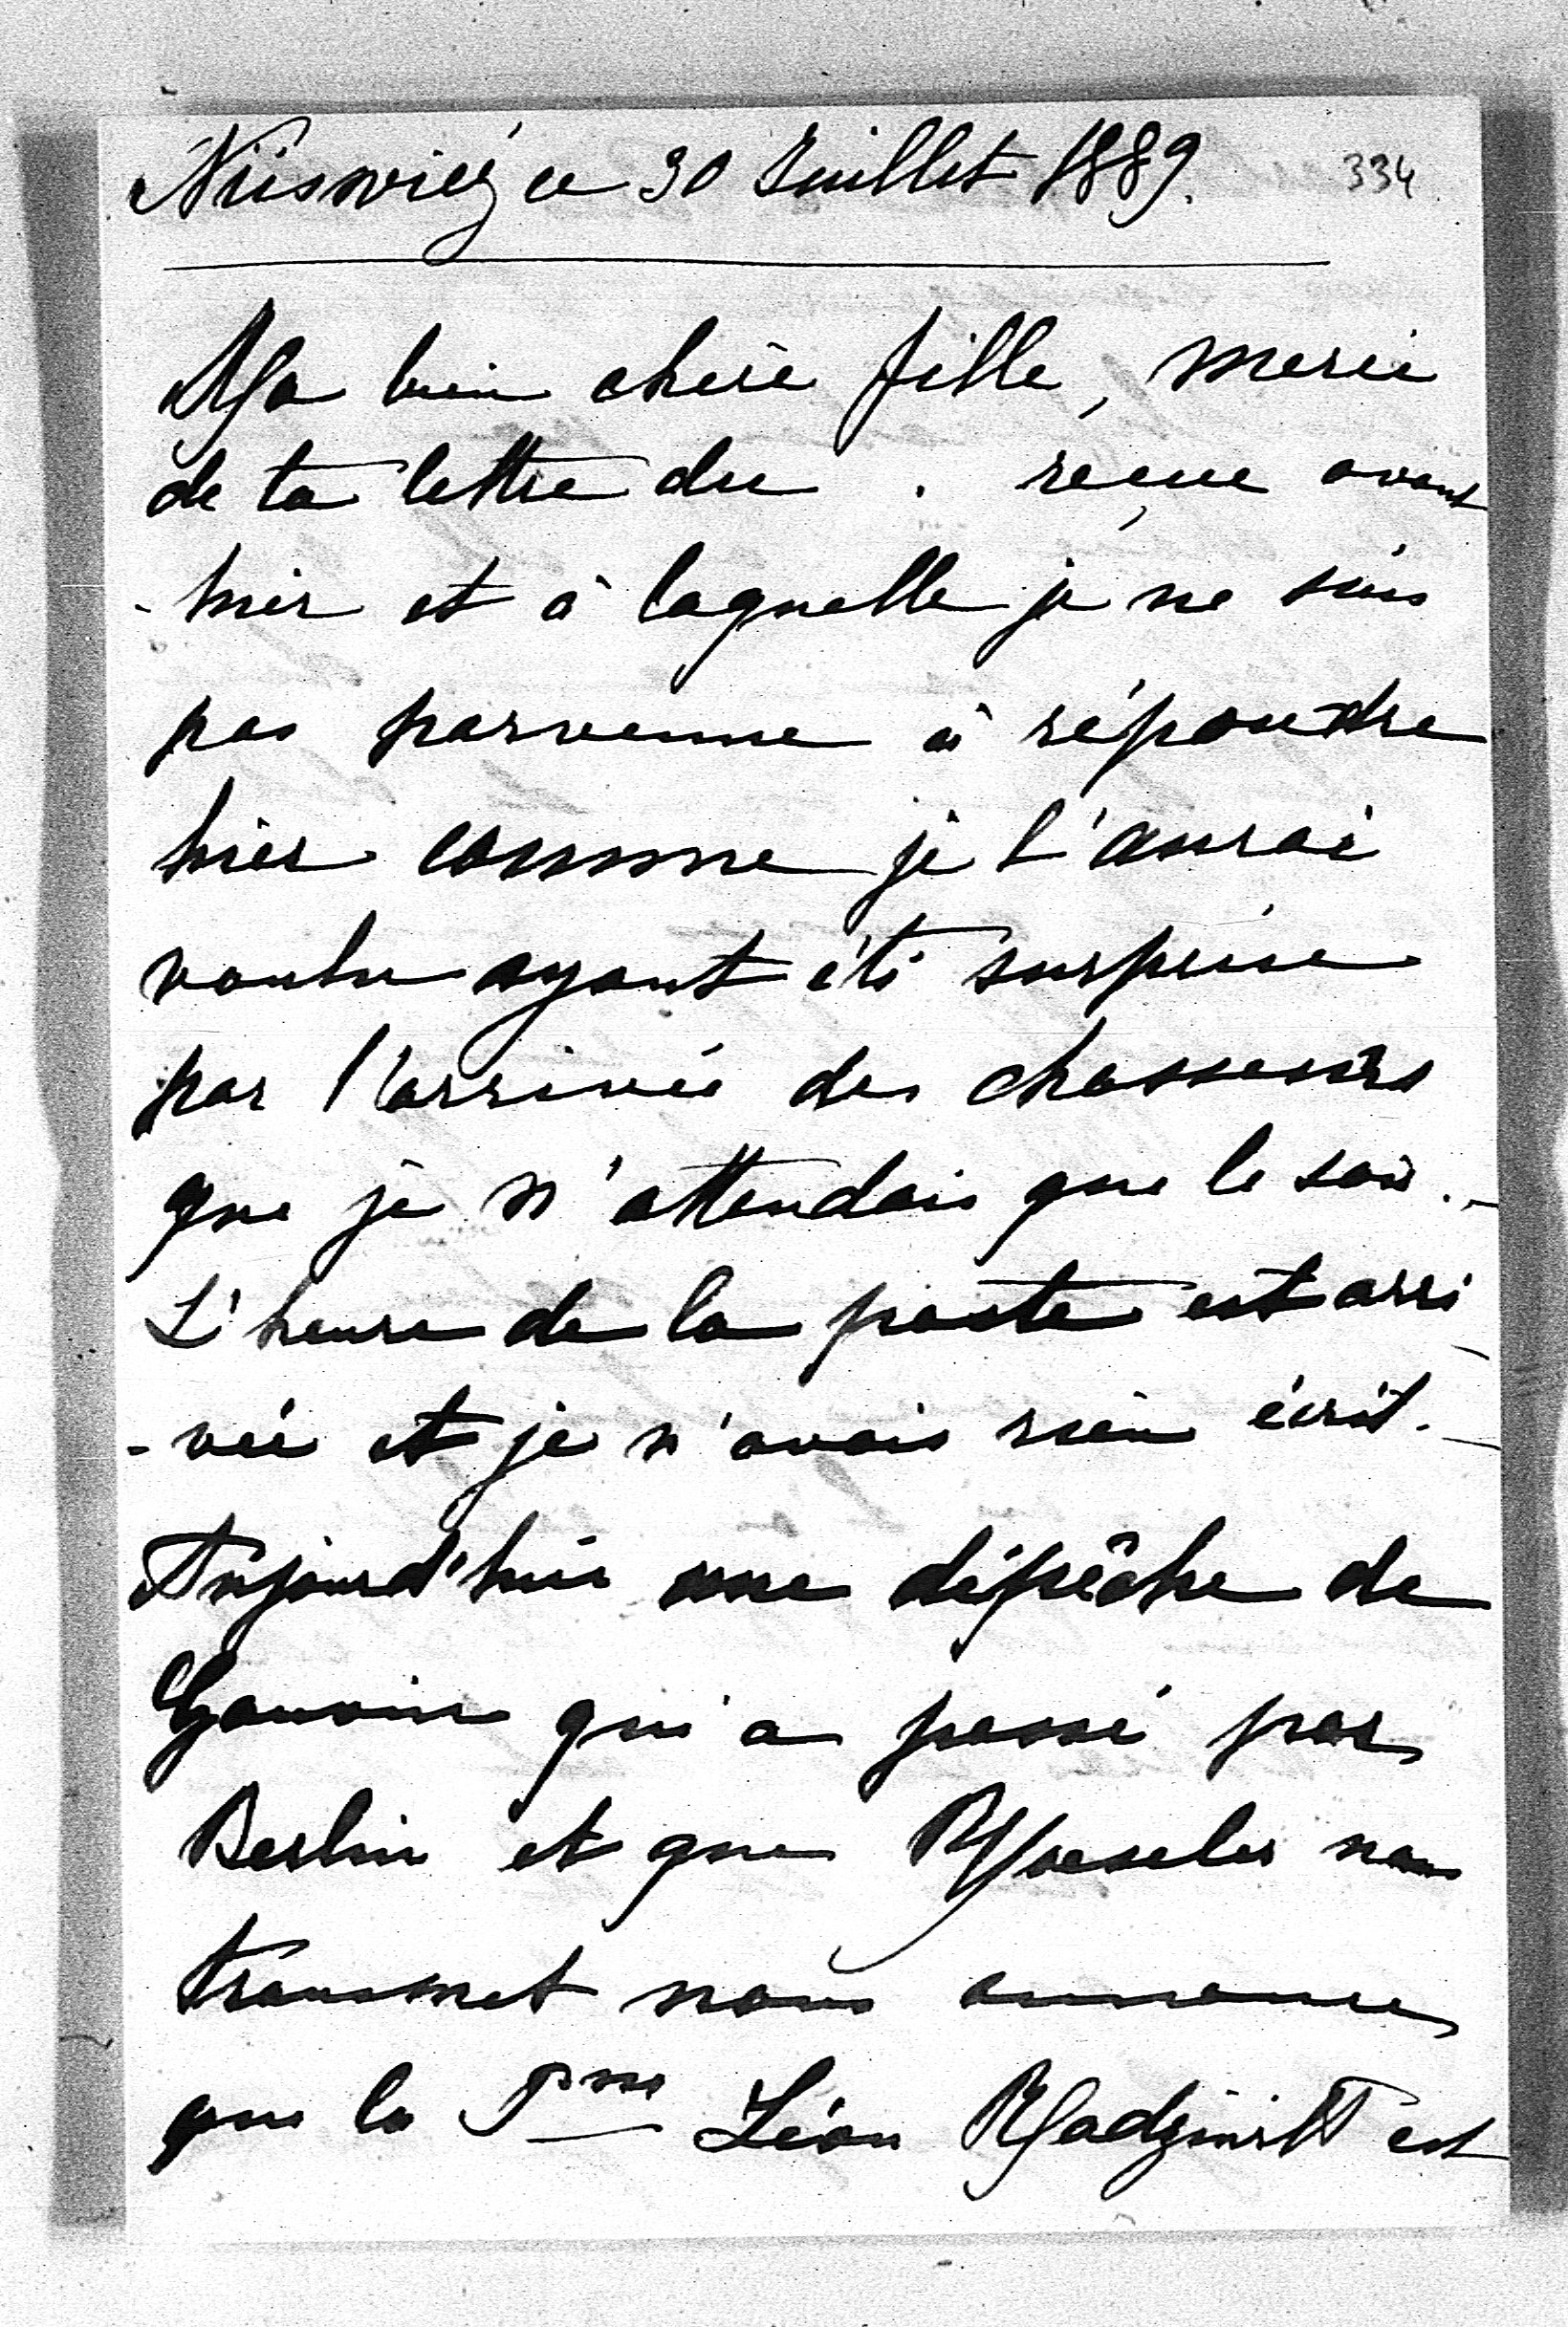 Niéswiéz ce 30 Juillet 1889. 334
Ma bien chère fille, merci
de ta lettre du . reçue avant
-hier et à laquelle je ne suis
pas parvenue à répondre
hier comme je l'aurai
voulu ayant été surprise
par l'arrivée des chasseurs
que je n'attendais que le soir. -
L'heure de la poste est arri
-vée et je n'avais rien écrit. -
Aujourd'hui une dépêche de
qui a passé par
Berlin et que nous
transmet nous annonce
que la Psse Léon Radziwiłł est